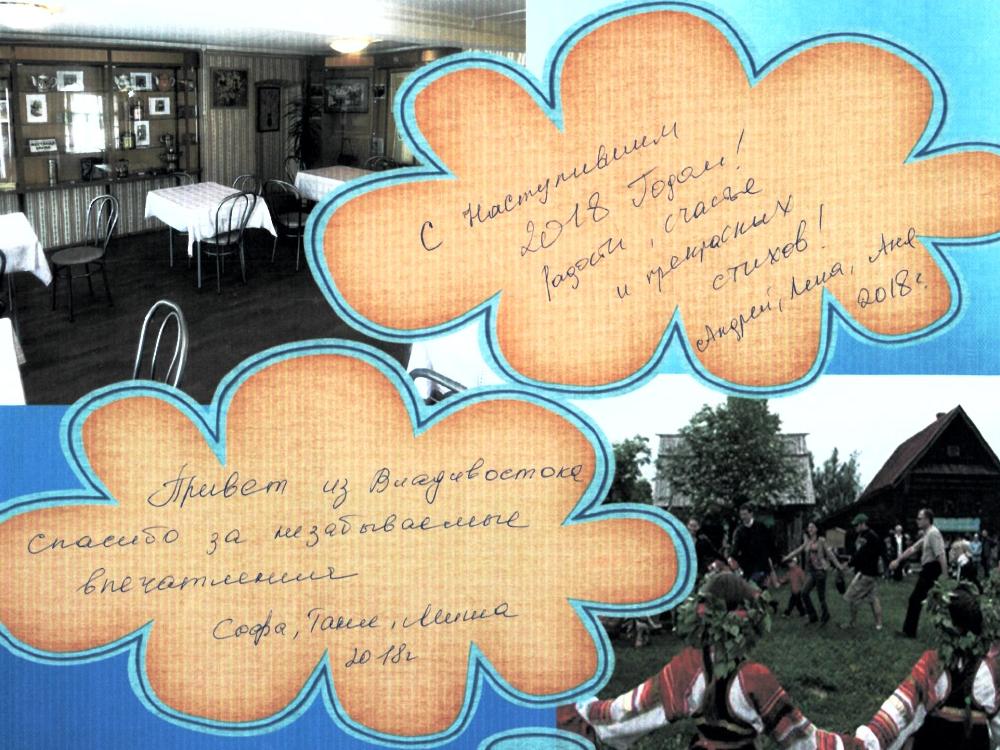 С Наступившим
2018 Годом!
радости, счастье
и прекрасных
стихов!
Андрей, Лена, Аня
2018г.
Привет из Владивостока
спасибо за незабываемые
впечатления
Софа, Таня, Миша
2018г